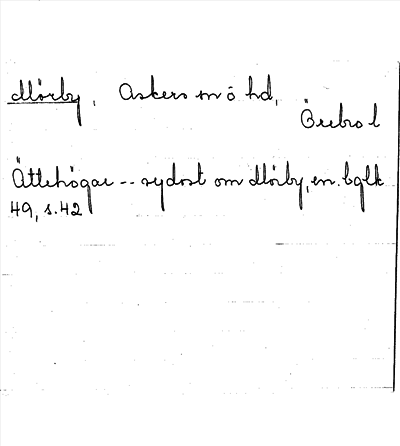 Mörby, Askers sn ö hd,
Örebro l
Ättehögar -- sydost om Mörby, en. bglk
49, s. 42